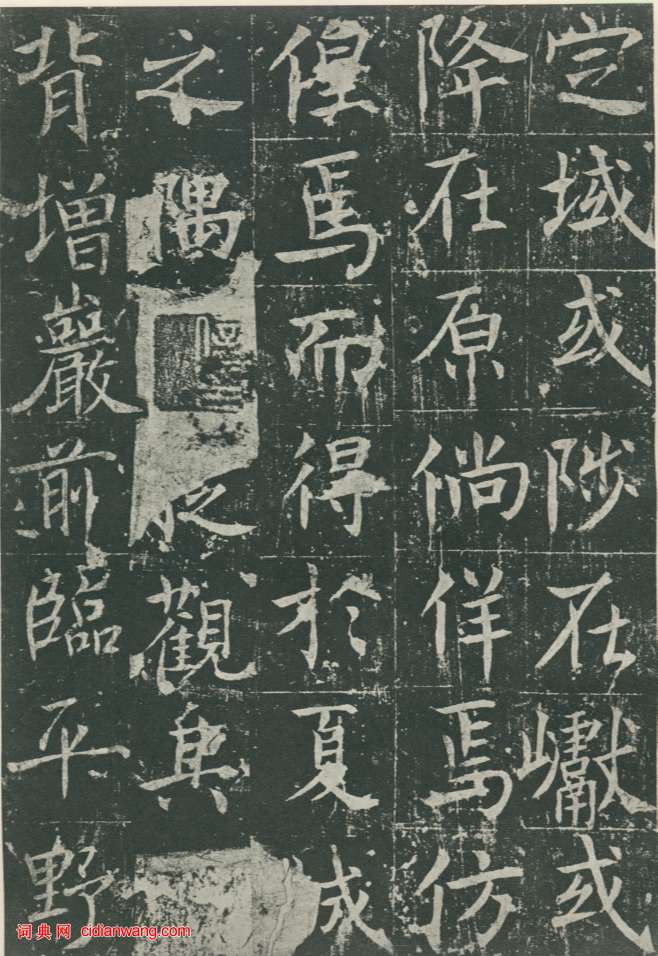 定域或陟在巘或
降在原倘佯焉仿
偟焉而得於夏成
之隅觀其
背增巖前臨平野
词典网 cidianwang.com